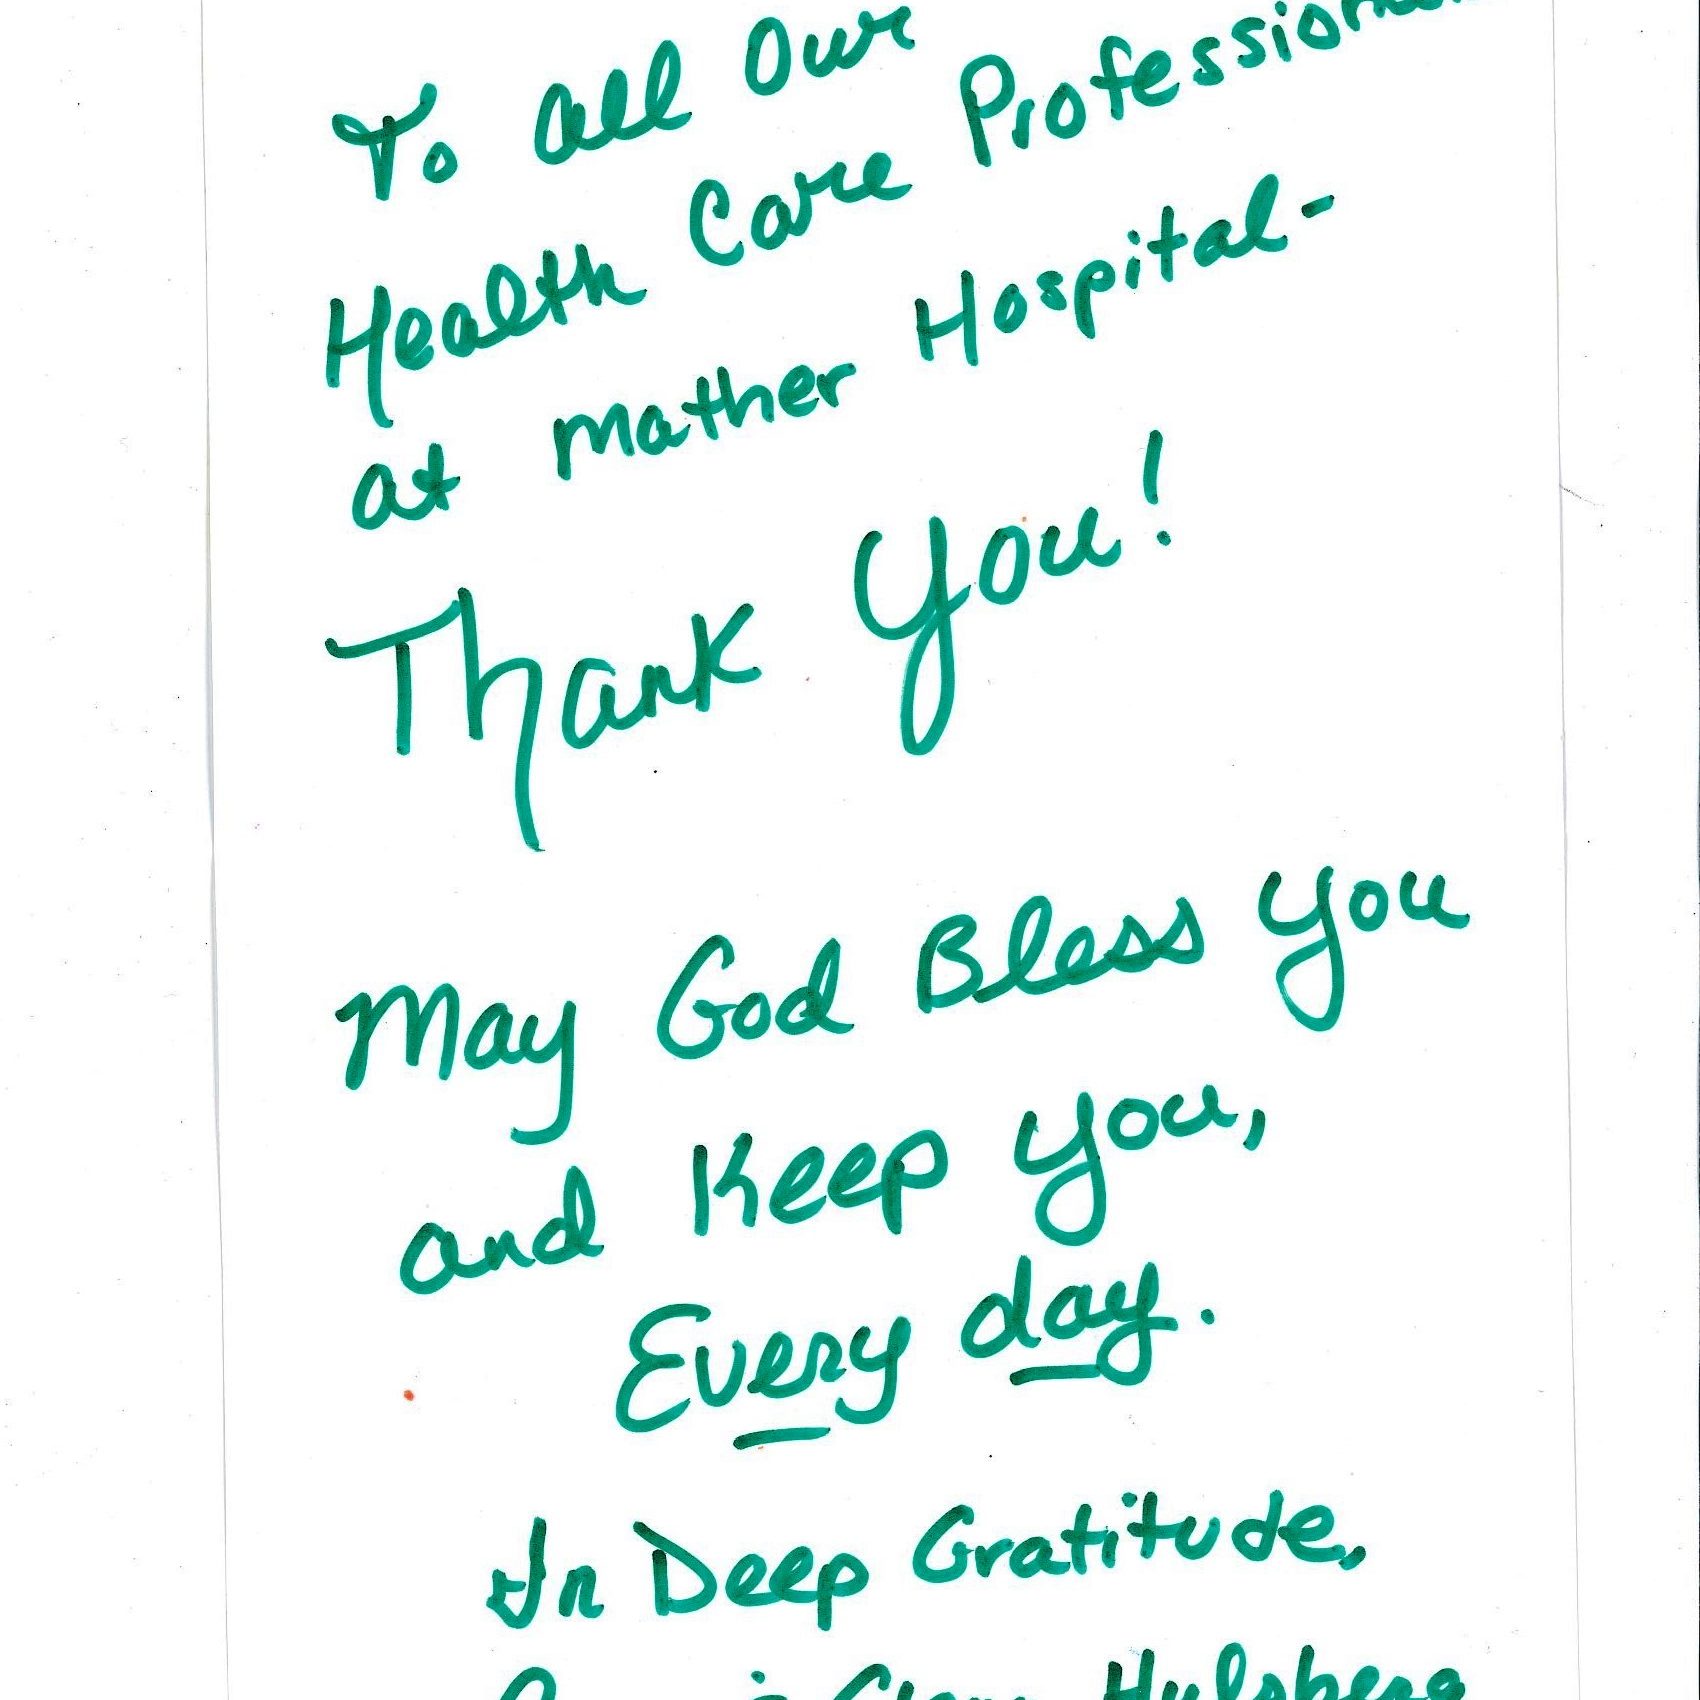 To all Our
Health Care Professional
at Mather Hospital-
Thank You!
May God Bless You
and Keep you,
Every day.
In Deep Gratitude,
Hulsberg